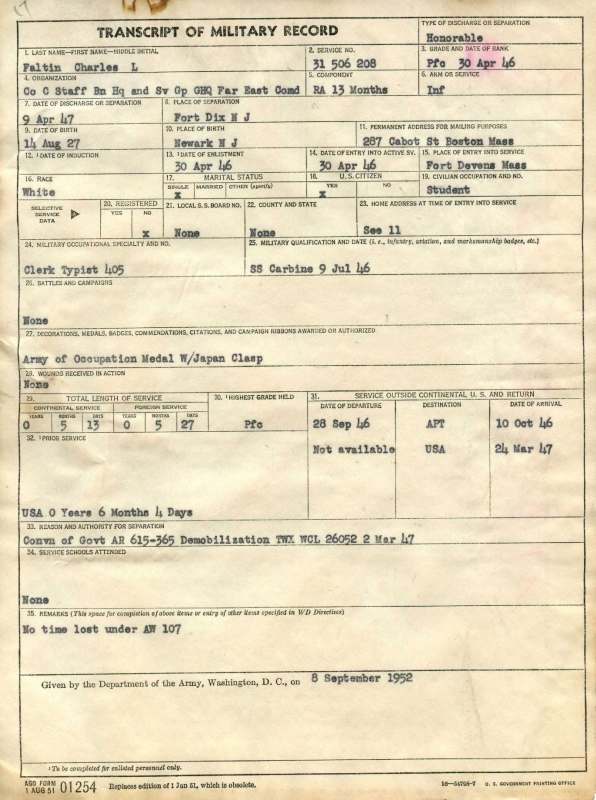 17
TRANSCRIPT OF MILITARY RECORD
TYPE OF DISCHARGE OR SEPARATION
Honorable
1. LAST NAME—FIRST NAME—MIDDLE INITIAL
2. SERVICE NO.
3. GRADE AND DATE OF RANK
Faltin Charles L
31 506 208
Pfc 30 Apr 46
4. ORGANIZATION
5. COMPONENT
6. ARM OR SERVICE
Co C Staff Bn Hq and Sv Gp GHQ Far East Comd
RA 13 Months
Inf
7. DATE OF DISCHARGE OR SEPARATION
8. PLACE OF SEPARATION
9 Apr 47
Fort Dix N J
9. DATE OF BIRTH
10. PLACE OF BIRTH
11. PERMANENT ADDRESS FOR MAILING PURPOSES
14 Aug 27
Newark N J
287 Cabot St Boston Mass
12. ¹DATE OF INDUCTION
13. ¹DATE OF ENLISTMENT
14. DATE OF ENTRY INTO ACTIVE SV.
15. PLACE OF ENTRY INTO SERVICE
30 Apr 46
30 Apr 46
Fort Devens Mass
16. RACE
17. MARITAL STATUS
18. U. S. CITIZEN
19. CIVILIAN OCCUPATION AND NO.
White
SINGLE
MARRIED
OTHER (Specify)
YES
NO
Student
X
X
SELECTIVE SERVICE DATA
20. REGISTERED
21. LOCAL S. S. BOARD NO.
22. COUNTY AND STATE
23. HOME ADDRESS AT TIME OF ENTRY INTO SERVICE
YES
NO
x
None
None
See 11
24. MILITARY OCCUPATIONAL SPECIALTY AND NO.
25. MILITARY QUALIFICATION AND DATE (i. e., infantry, aviation, and marksmanship badges, etc.)
Clerk Typist 405
SS Carbine 9 Jul 46
26. BATTLES AND CAMPAIGNS
None
27. DECORATIONS, MEDALS, BADGES, COMMENDATIONS, CITATIONS, AND CAMPAIGN RIBBONS AWARDED OR AUTHORIZED
Army of Occupation Medal W/Japan Clasp
28. WOUNDS RECEIVED IN ACTION
None
29. TOTAL LENGTH OF SERVICE
30. ¹HIGHEST GRADE HELD
31. SERVICE OUTSIDE CONTINENTAL U. S. AND RETURN
CONTINENTAL SERVICE
FOREIGN SERVICE
DATE OF DEPARTURE
DESTINATION
DATE OF ARRIVAL
YEARS
MONTHS
DAYS
YEARS
MONTHS
DAYS
0
5
13
0
5
27
Pfc
28 Sep 46
APT
10 Oct 46
32. ¹PRIOR SERVICE
Not available
USA
24 Mar 47
USA 0 Years 6 Months 4 Days
33. REASON AND AUTHORITY FOR SEPARATION
Convn of Govt AR 615-365 Demobilization TWX WCL 26052 2 Mar 47
34. SERVICE SCHOOLS ATTENDED
None
35. REMARKS (This space for completion of above items or entry of other items specified in WD Directives)
No time lost under AW 107
Given by the Department of the Army, Washington, D. C., on
8 September 1952
¹To be completed for enlisted personnel only.
AGO FORM
1 AUG 51
01254
Replaces edition of 1 Jan 51, which is obsolete.
U. S. GOVERNMENT PRINTING OFFICE